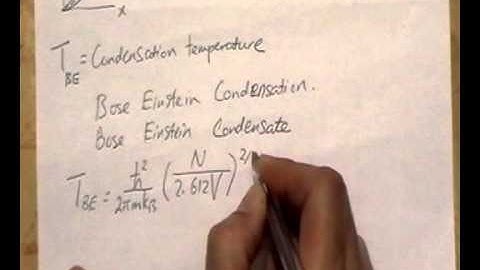 x
T_BE = Condensation temperature
Bose Einstein Condensation.
Bose Einstein Condensate
T_BE = ħ²/2πmk_B (N/2.612V)^2/